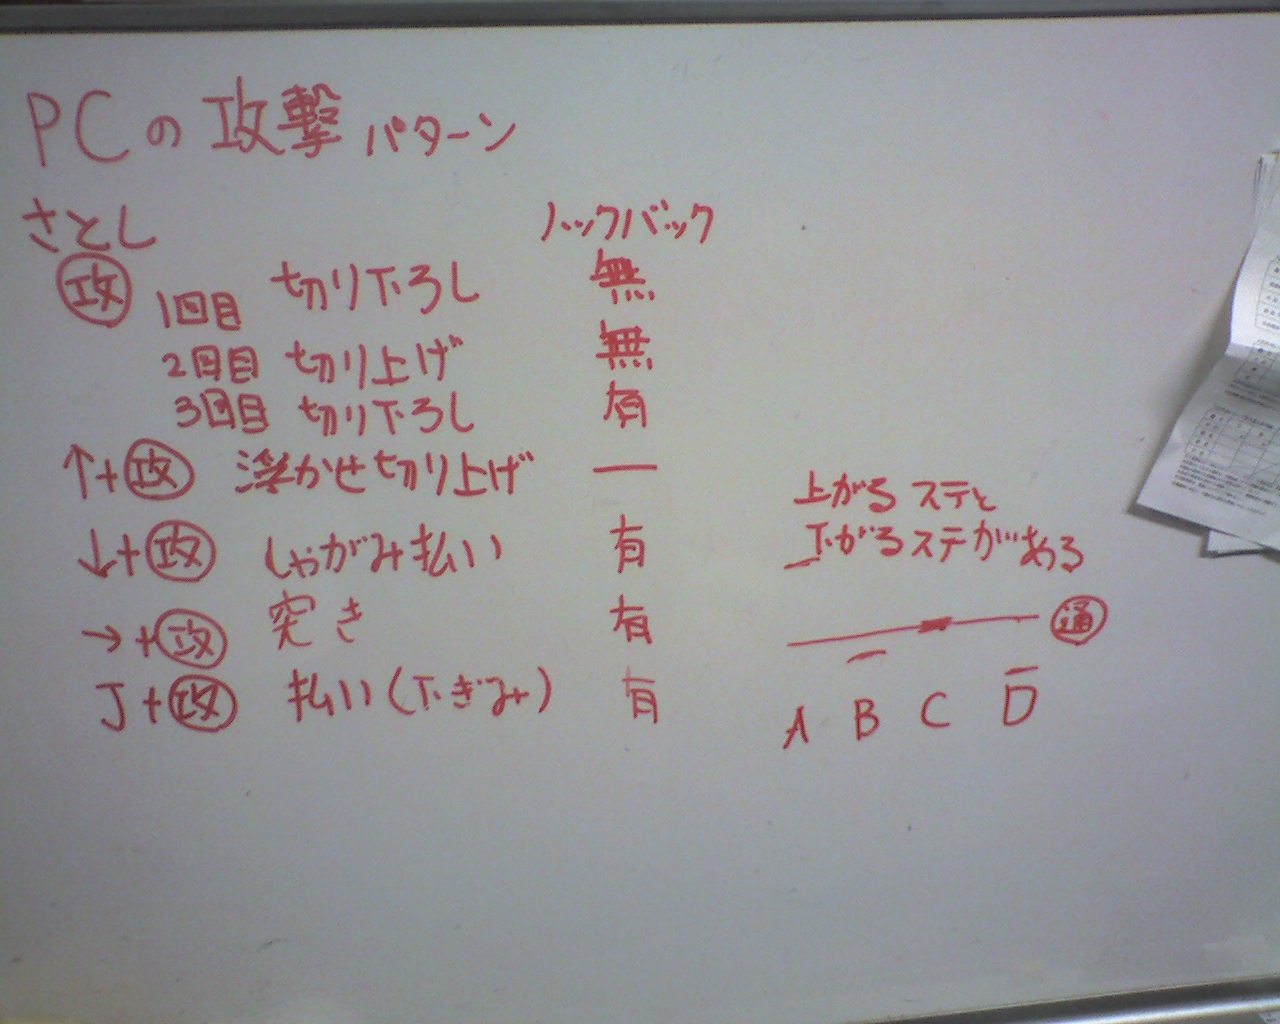 PCの攻撃パターン
さとし ノックバック
攻 1回目 切り下ろし 無
2回目 切り上げ 無
3回目 切り下ろし 有
↑+攻 浮かせ切り上げ ー
↓+攻 しゃがみ払い 有
→+攻 突き 有
J+攻 払い(下ぎみ) 有
上がるステと
下がるステがある
通
A B C D